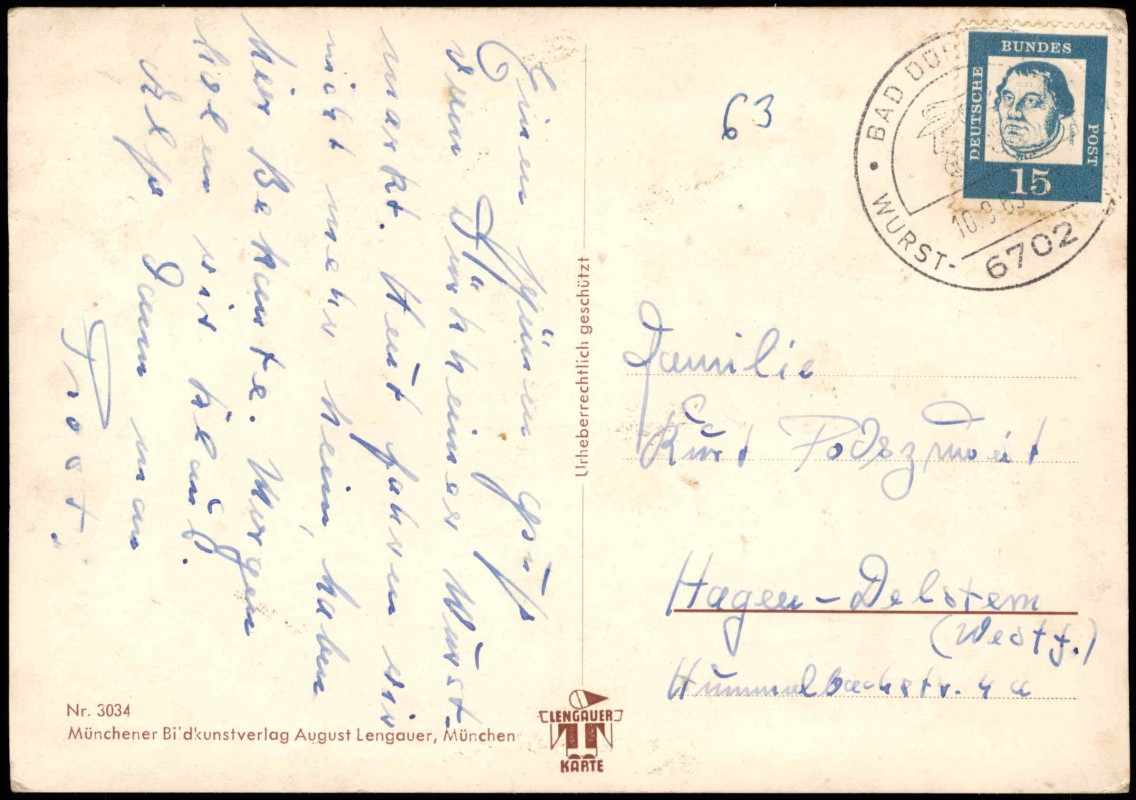 Einen schönen Gruß
vom Dürkheimer Wurst-
markt. Heut fahren wir
nicht mehr heim, haben
hier Bekannte. Morgen
holen wir
dann
Prost.
Urheberrechtlich geschützt
63
BAD DÜ
WURST-
10.9.63
6702
DEUTSCHE
BUNDES
POST
15
Familie
Kurt Podszuweit
Hagen-Delstern
(Westf.)
Hummelbachstr. 4a
Nr. 3034
Münchener Bildkunstverlag August Lengauer, München
LENGAUER
KARTE